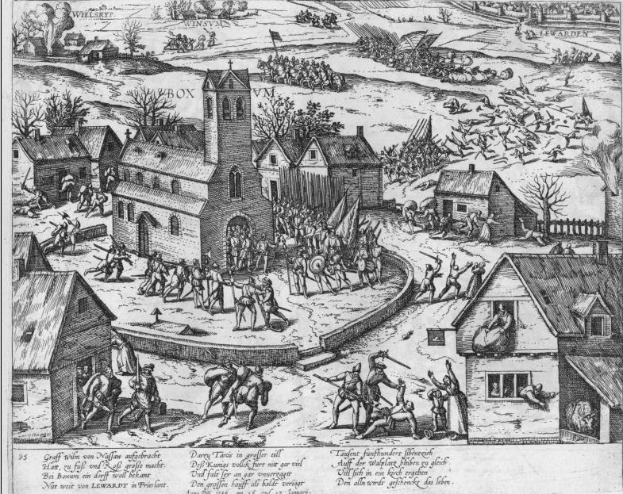 WIELSRYP
WINSVM
LEWARDEN
BOXVM
95
Graff Wilm von Nassaw aufgebracht
Hatt zu fuß und Roß große macht
Bei Boxum ein dorff woll bekant
Nit weit von LEWARDT in Frieslant
Darry Tassis in grosser eill
Deß Kunigs volck furt mit gar viel
Und fult ser an gar
Den grossen hauff als
Tausent funffhundert sibentzich
Auff der Walplatz bleben zu gleich
Vill sich in ein kirch ergaben
Den allen wardt geschenckt das leben.